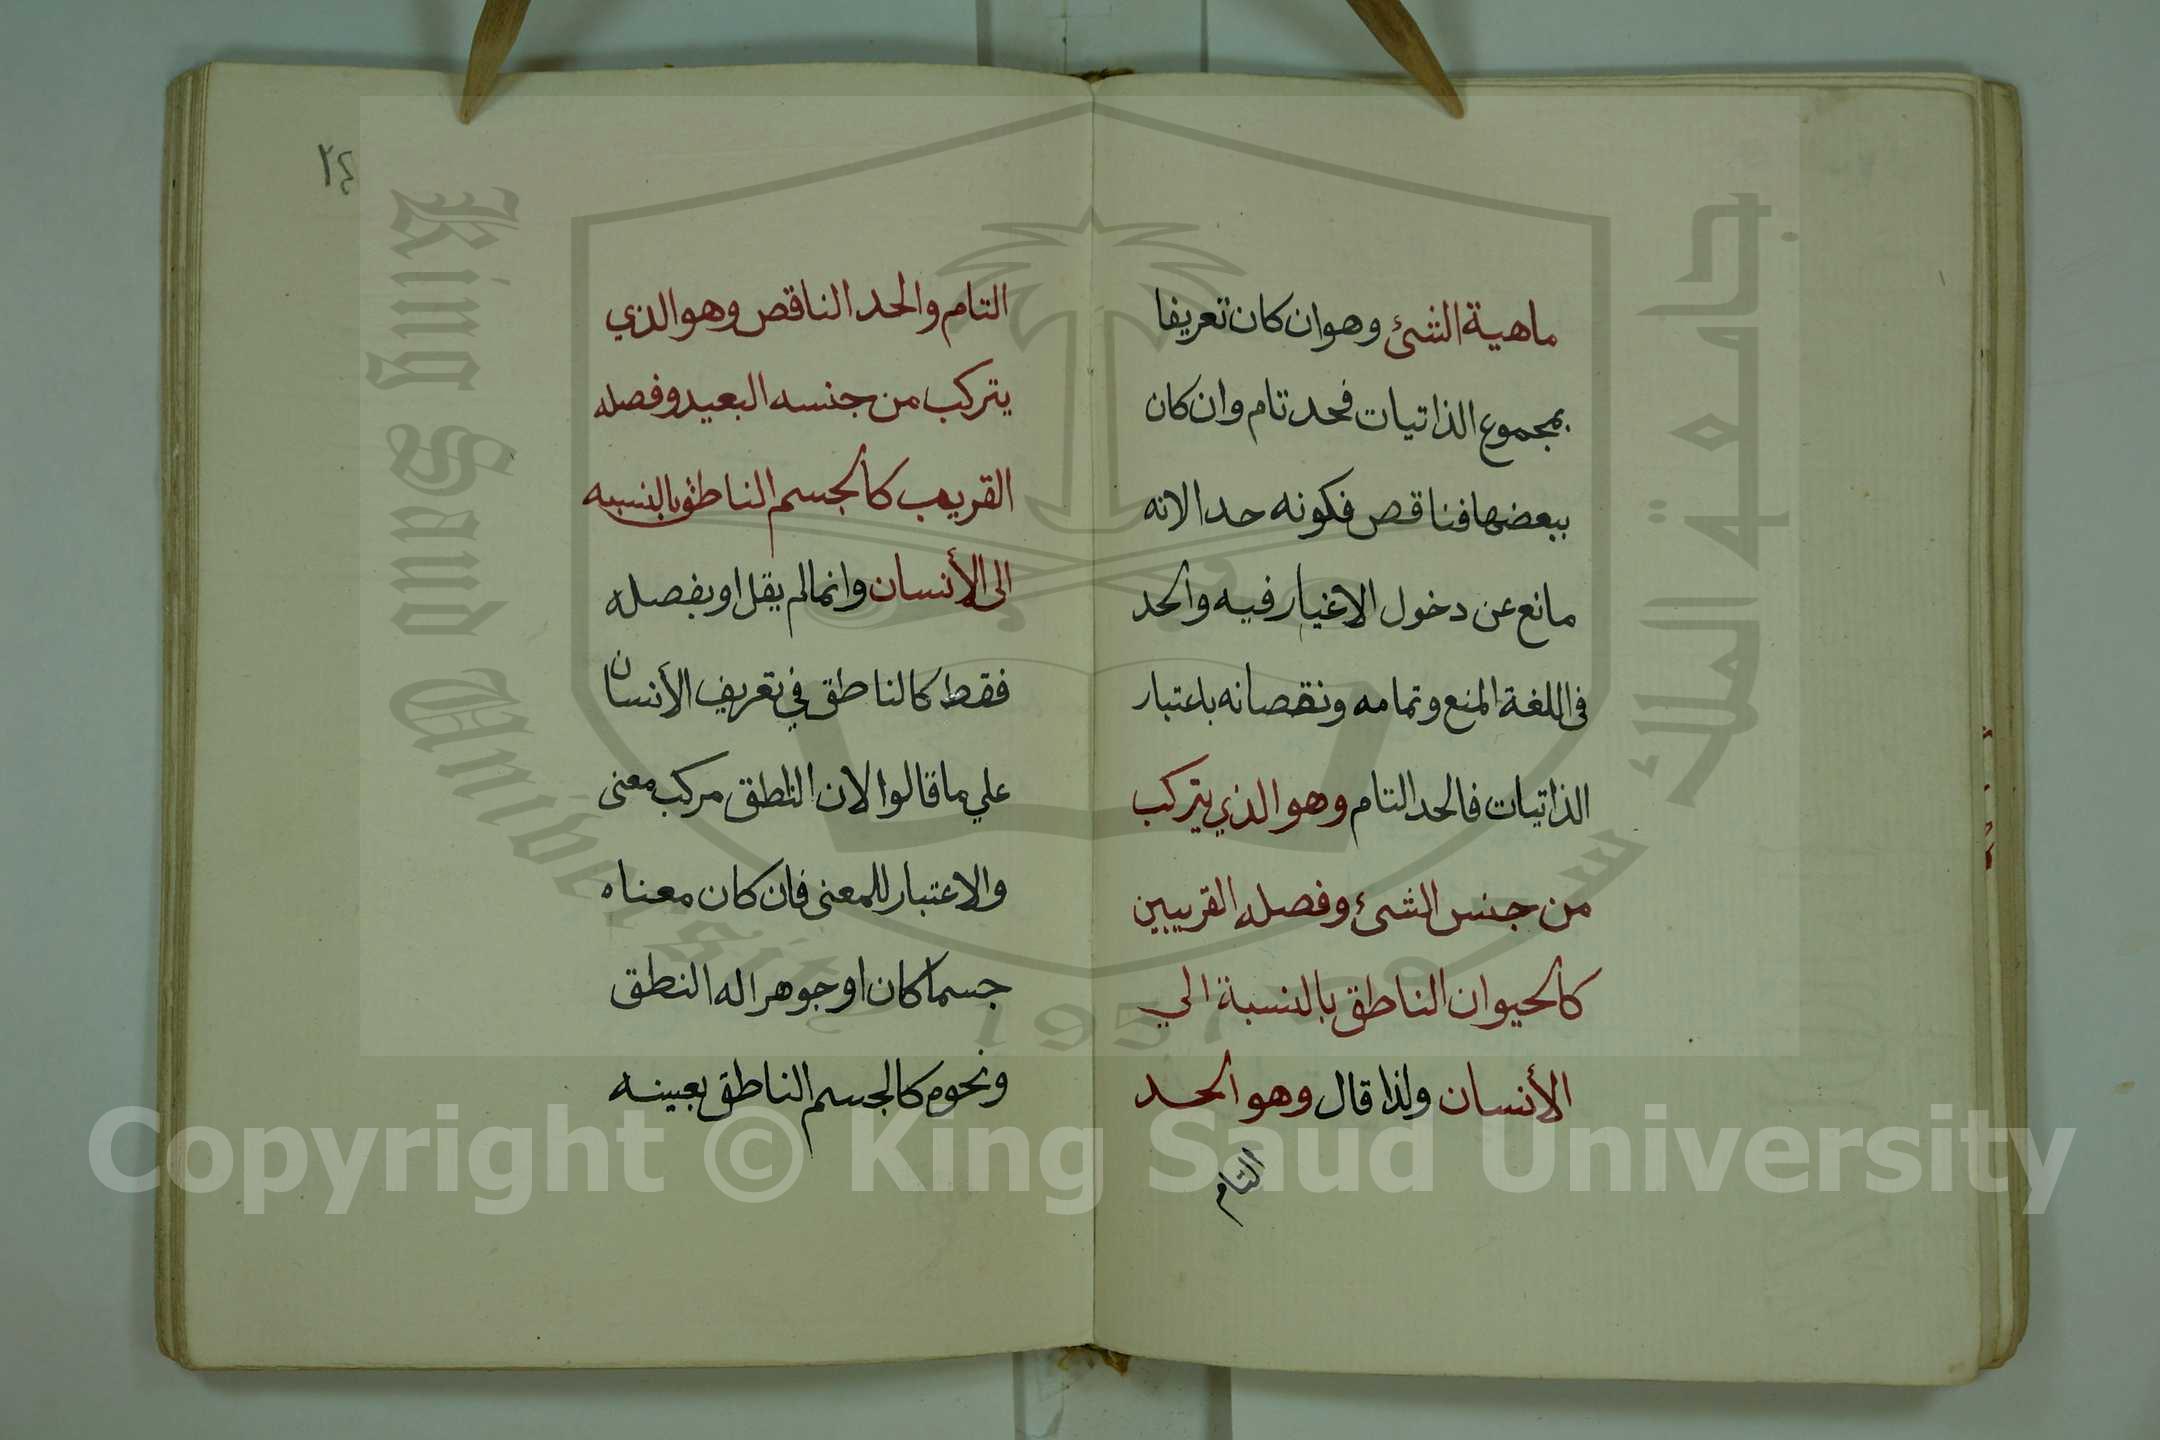 ماهية الشئ وهو ان كان تعريفا
بمجموع الذاتيات فحد تام وان كان
ببعضها فناقص فكونه حدا لانه
مانع عن دخول الاغيار فيه والحد
فى اللغة المنع وتمامه ونقصانه باعتبار
الذاتيات فالحد التام وهو الذي يتركب
من جنس الشئ وفصله القريبين
كالحيوان الناطق بالنسبة الي
الأنسان ولذا قال وهو الحد
التام
٢٤
التام والحد الناقص وهو الذي
يتركب من جنسه البعيد وفصله
القريب كالجسم الناطق بالنسبه
الى الأنسان وانما لم يقل او بفصله
فقط كالناطق في تعريف الأنسان
علي ما قالوا لان الناطق مركب معنى
والاعتبار للمعنى فان كان معناه
جسما كان او جوهرا له النطق
ونحوه كالجسم الناطق بعينه
King Saud University
جامعة الملك سعود
1957
Copyright © King Saud University